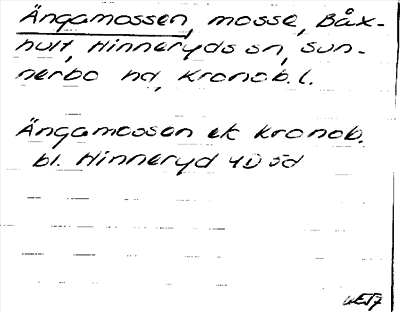 Ängamossen, mosse, Båx-
hult, Hinneryds sn, Sun-
nerbo hd, Kronob. l.
Ängamossen ek Kronob.
bl. Hinneryd 4D 5d